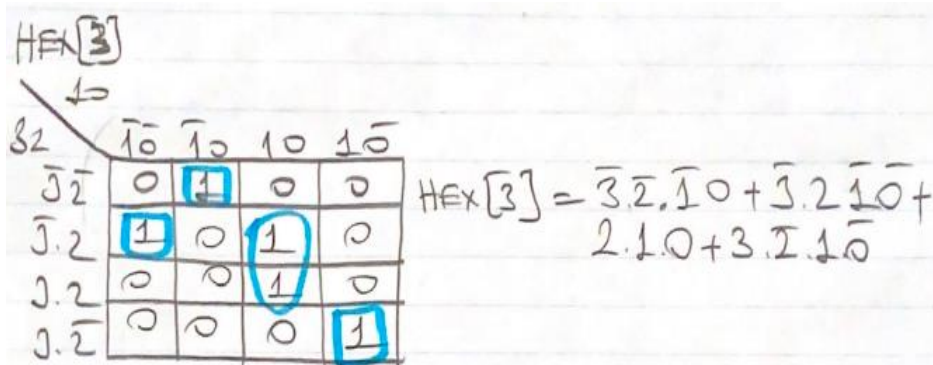 HEX[3]
10
32 1̄0̄ 1̄0 10 10̄
3̄2̄ 0 1 0 0
3̄.2 1 0 1 0
3.2 0 0 1 0
3.2̄ 0 0 0 1
HEX[3] = 3̄.2̄.1̄0 + 3̄.2 1̄0̄ +
2.1.0 + 3.2̄.10̄